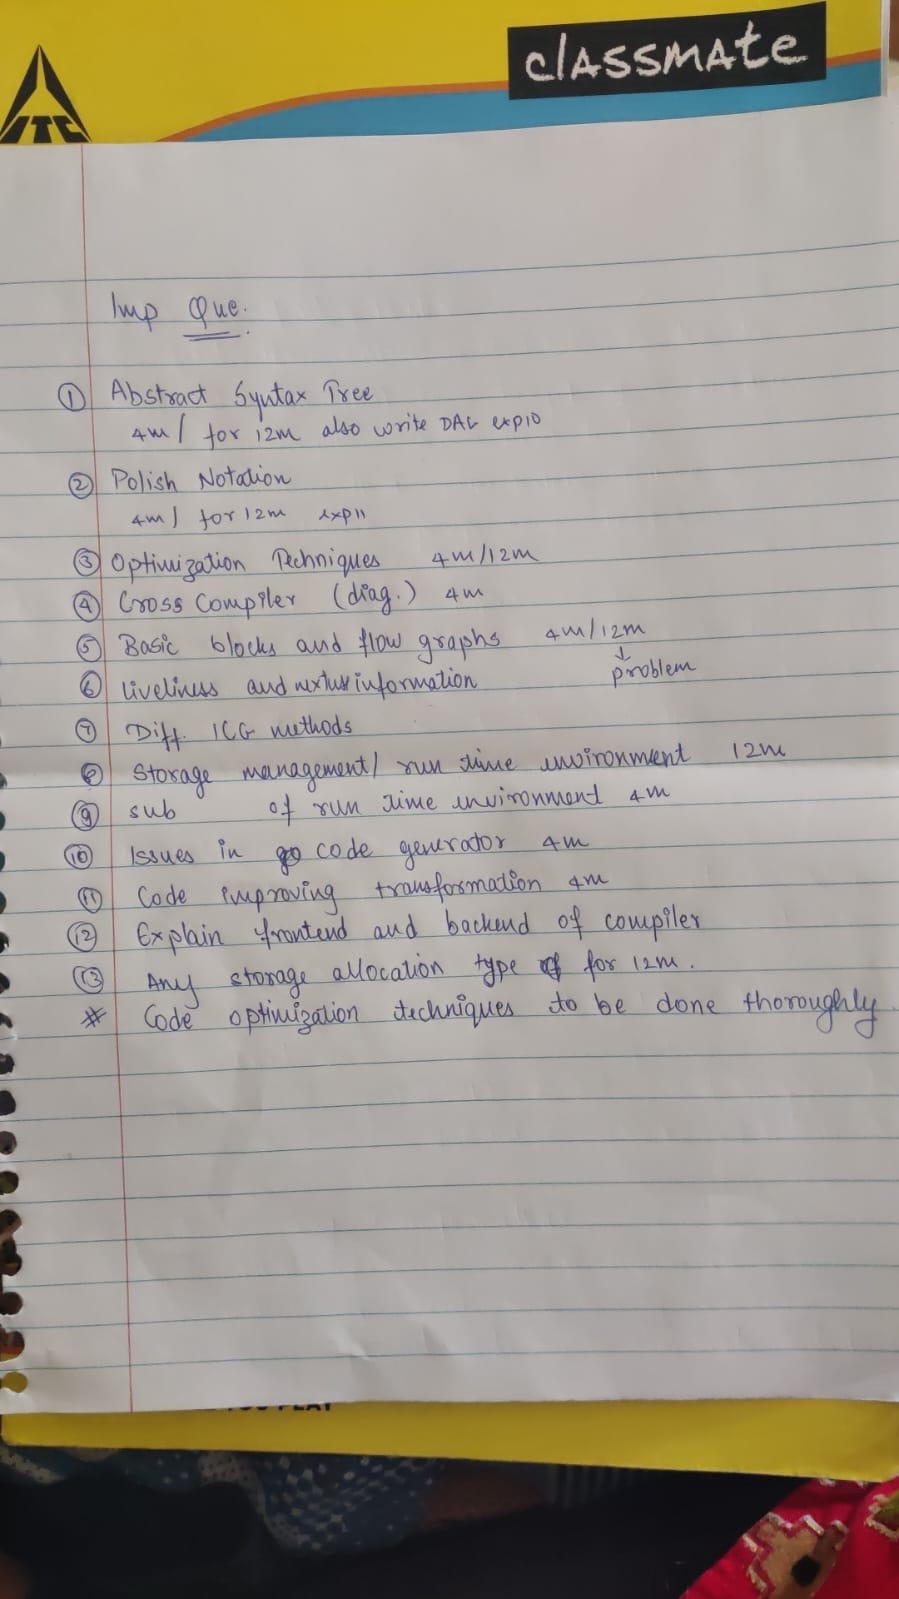 classmate
ITC
Imp Que.
① Abstract Syntax Tree
4m / for 12m also write DAG exp10
② Polish Notation
4m / for 12m exp11
③ Optimization Techniques 4m/12m
④ Cross Compiler (diag.) 4m
⑤ Basic blocks and flow graphs 4m/12m
↓
problem
⑥ Liveliness and nextuse information
⑦ Diff. ICG methods
⑧ Storage management/ run time environment 12m
⑨ sub of run time environment 4m
⑩ Issues in code generator 4m
⑪ Code improving transformation 4m
⑫ Explain frontend and backend of compiler
⑬ Any storage allocation type for 12m.
* Code optimization techniques to be done thoroughly